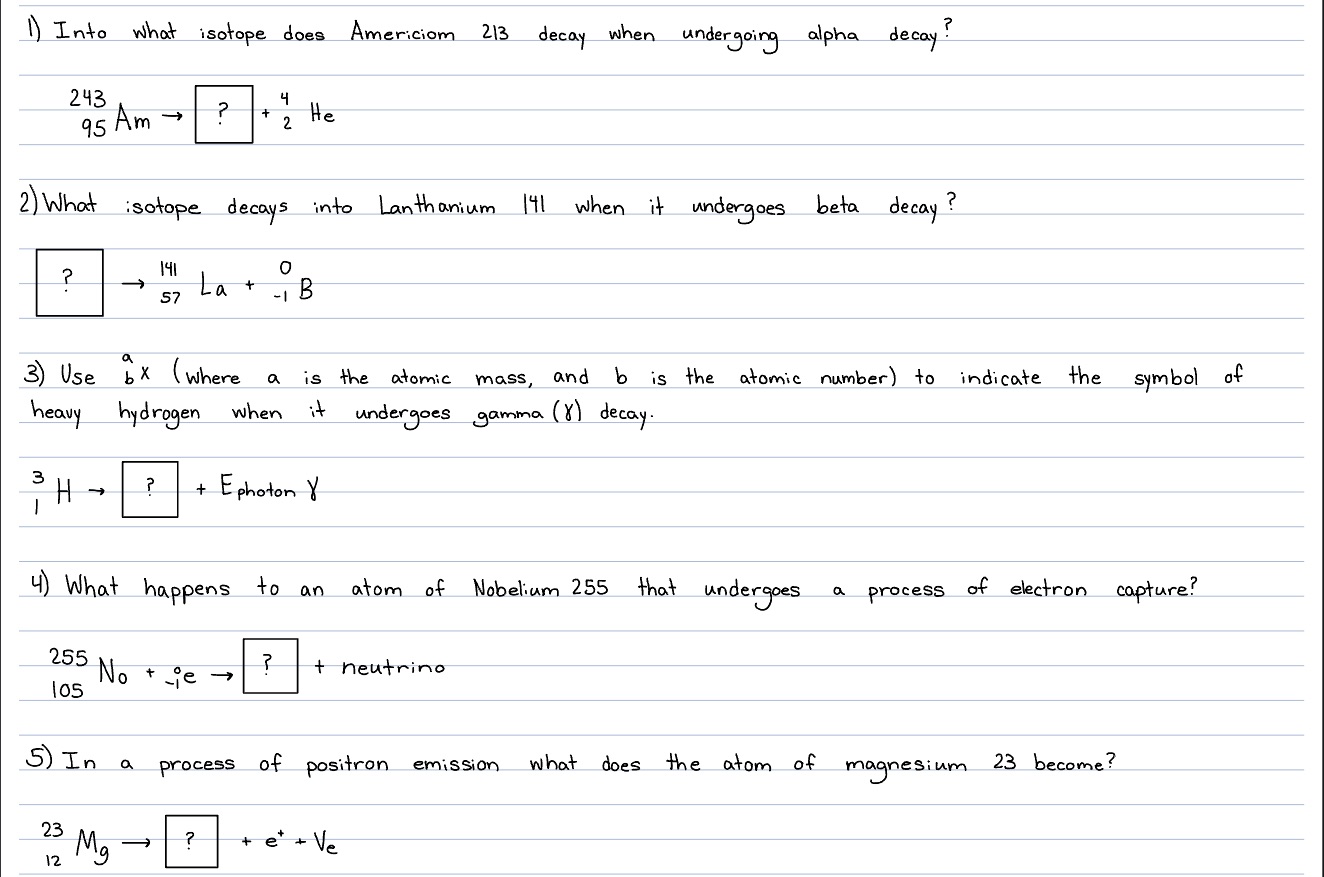 1) Into what isotope does Americiom 213 decay when undergoing alpha decay?
²⁴³₉₅Am → ? + ⁴₂He
2) What isotope decays into Lanthanium 141 when it undergoes beta decay?
? → ¹⁴¹₅₇La + ⁰₋₁B
3) Use ᵃbX (where a is the atomic mass, and b is the atomic number) to indicate the symbol of
heavy hydrogen when it undergoes gamma (γ) decay.
³₁H → ? + Ephoton γ
4) What happens to an atom of Nobelium 255 that undergoes a process of electron capture?
²⁵⁵₁₀₅No + ⁰₋₁e → ? + neutrino
5) In a process of positron emission what does the atom of magnesium 23 become?
²³₁₂Mg → ? + e⁺ + Ve